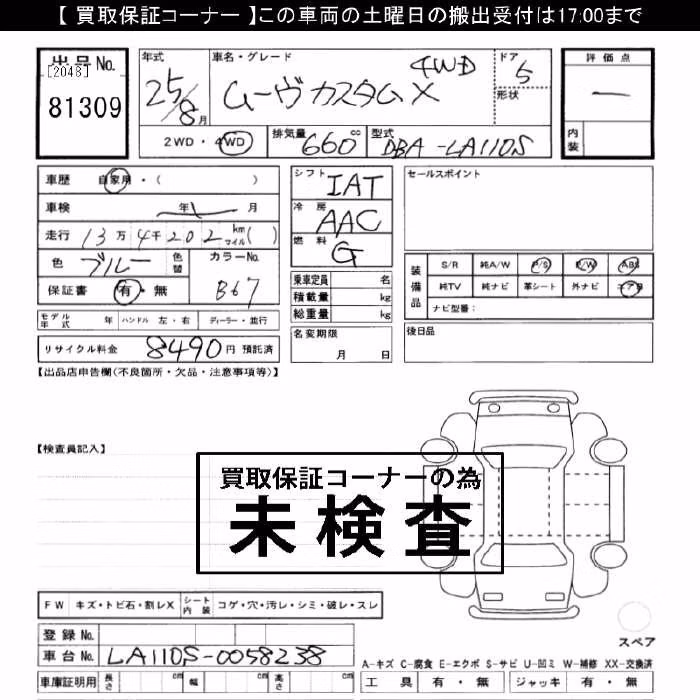 【 買取保証コーナー 】この車両の土曜日の搬出受付は17:00まで
出品No.
[2048]
81309
年式
25/8月
車名・グレード
ムーヴカスタムX 4WD
ドア
5
形状
2WD・4WD
排気量
660cc
型式
DBA-LA110S
評価点
—
内装
車歴 自家用・( )
車検 年 月
走行 13万4千202 km マイル( )
色 ブルー 色替
カラーNo.
B67
保証書 有・無
シフト
IAT
冷房
AAC
燃料
G
乗車定員 名
積載量 kg
総重量 kg
セールスポイント
装備品
S/R 純A/W P/S P/W ABS
純TV 純ナビ 革シート 外ナビ エアB
ナビ型番:
モデル年式 年 ハンドル 左・右 ディーラー・並行
リサイクル料金 8490円 預託済
名変期限
月 日
後日品
【出品店申告欄(不良箇所・欠品・注意事項等)】
【検査員記入】
買取保証コーナーの為
未検査
FW キズ・トビ石・割レX
シート内装 コゲ・穴・汚レ・シミ・破レ・スレ
登録No.
車台No. LA110S-0058238
車庫証明用 長さ cm 幅 cm 高さ cm
スペア
A-キズ C-腐食 E-エクボ S-サビ U-凹ミ W-補修 XX-交換済
工具 有・無 ジャッキ 有・無